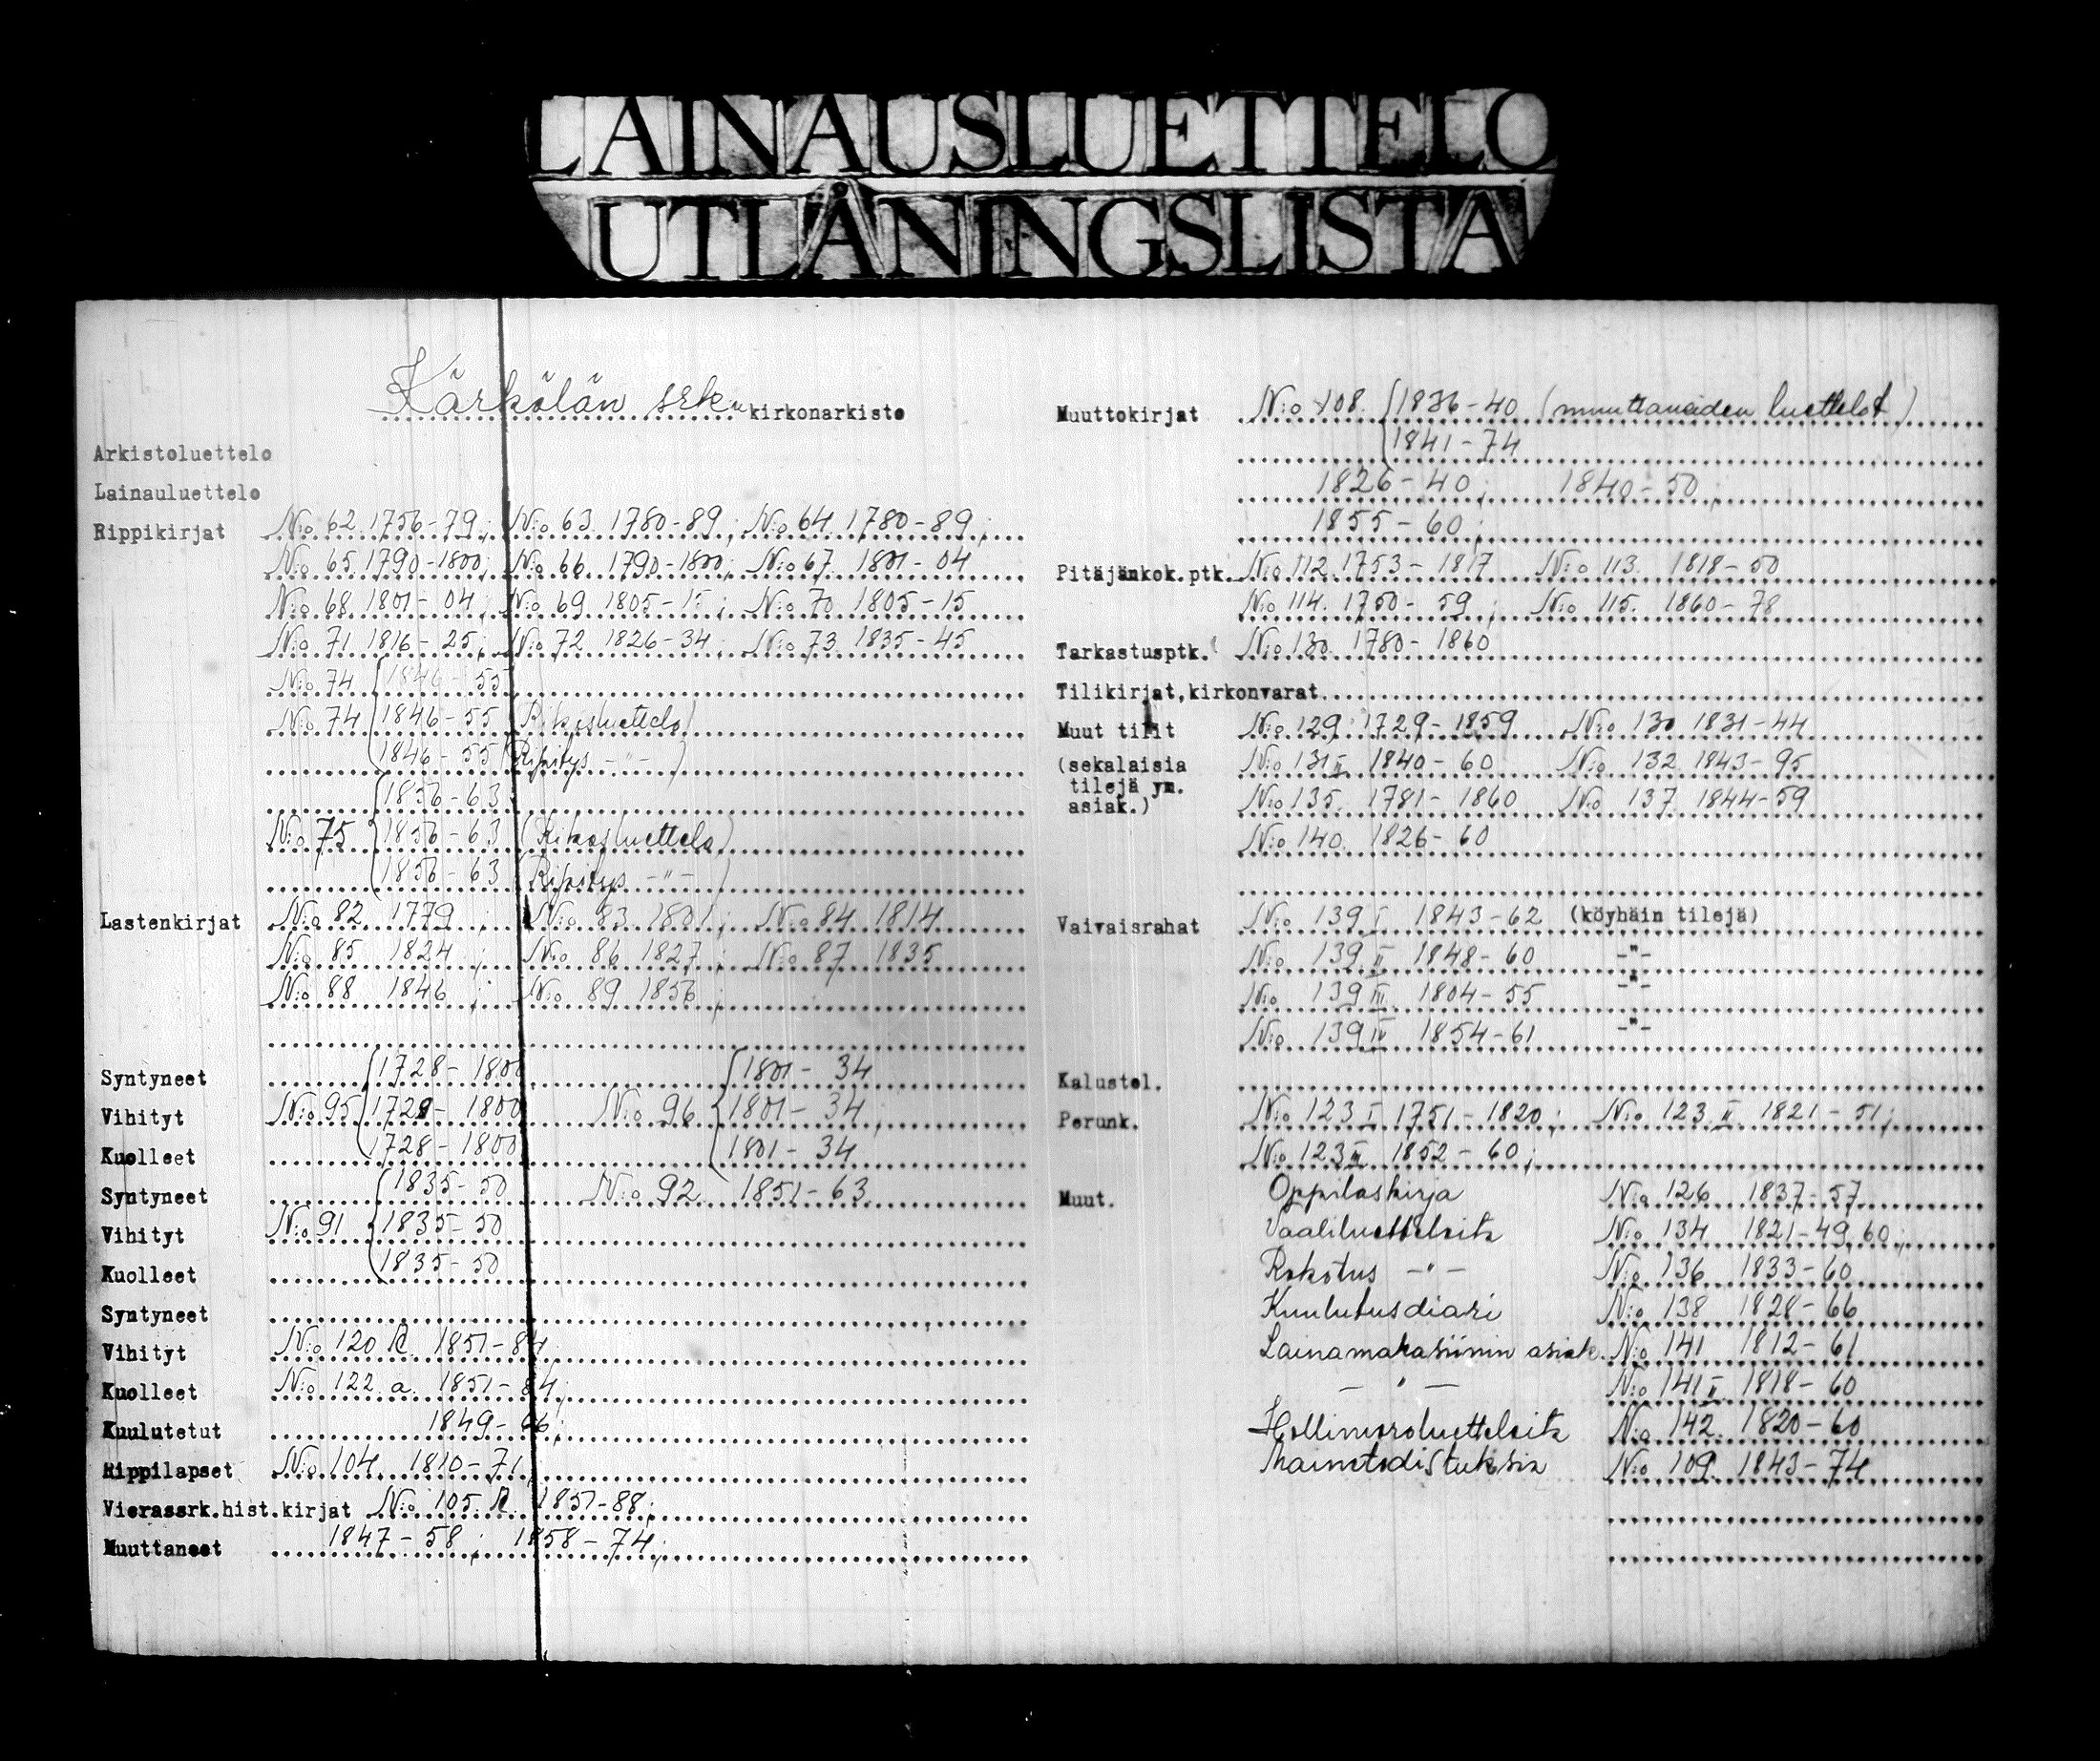 LAINAUSLUETTELO
UTLÅNINGSLISTA
Kärkölän srk:n kirkonarkisto
Arkistoluettelo
Lainauluettelo
Rippikirjat N:o 62. 1756-79; N:o 63. 1780-89; N:o 64. 1780-89;
N:o 65. 1790-1800; N:o 66. 1790-1800; N:o 67. 1801-04
N:o 68. 1801-04; N:o 69. 1805-15; N:o 70. 1805-15
N:o 71. 1816-25; N:o 72. 1826-34; N:o 73. 1835-45
N:o 74 1846-55
N:o 74 1846-55 (Rikosluettelo)
1846-55 (Ripitys -"-)
1856-63
N:o 75 1856-63 (Rikosluettelo)
1856-63 (Ripitys -"-)
Lastenkirjat N:o 82. 1779; N:o 83. 1801; N:o 84. 1814
N:o 85 1824; N:o 86 1827; N:o 87 1835
N:o 88 1846; N:o 89 1856;
Syntyneet 1728-1800 1801-34
Vihityt N:o 95 1728-1800 N:o 96 1801-34;
Kuolleet 1728-1800 1801-34
Syntyneet 1835-50 N:o 92. 1851-63
Vihityt N:o 91 1835-50
Kuolleet 1835-50
Syntyneet
Vihityt N:o 120 R. 1851-84
Kuolleet N:o 122. a. 1851-84;
Kuulutetut 1849-66;
Rippilapset N:o 104. 1810-71,
Vierassrk.hist.kirjat N:o 105. R. 1851-88;
Muuttaneet 1847-58; 1858-74;
Muuttokirjat N:o 108. 1836-40 (muuttaneiden luettelot)
1841-74
1826-40; 1840-50;
1855-60;
Pitäjänkok.ptk. N:o 112. 1753-1817 N:o 113. 1818-50
N:o 114. 1750-59; N:o 115. 1860-78
Tarkastusptk. N:o 130. 1780-1860
Tilikirjat,kirkonvarat
Muut tilit N:o 129. 1729-1859 N:o 130 1831-44
(sekalaisia N:o 131 II 1840-60 N:o 132 1843-95
tilejä ym. N:o 135. 1781-1860 N:o 137. 1844-59
asiak.)
N:o 140. 1826-60
Vaivaisrahat N:o 139 I 1843-62 (köyhäin tilejä)
N:o 139 II 1848-60 -"-
N:o 139 III 1804-55 -"-
N:o 139 IV 1854-61 -"-
Kalustol.
Perunk. N:o 123 I 1751-1820; N:o 123 II 1821-51;
N:o 123 III 1852-60;
Muut. Oppilaskirja N:o 126 1837-57
Vaaliluetteloita N:o 134 1821-49,60;
Rokotus -"- N:o 136 1833-60
Kuulutusdiari N:o 138 1828-66
Lainamakasiinin asiak. N:o 141 1812-61
-"- N:o 141 II 1818-60
Hollimoroluetteloita N:o 142. 1820-60
Mainetodistuksia N:o 109. 1843-74